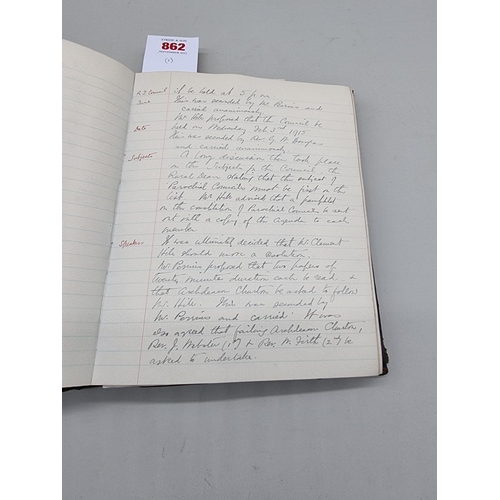 862
(1)
R D Council it be held at 5 p.m.
Time This was seconded by Mr Perrins and
carried unanimously.
Mr Hile proposed that the Council be
Date held on Wednesday Feb 3rd 1915
This was seconded by Rev. G. W.
and carried unanimously.
Subjects A long discussion then took place
on the Subjects for the Council, the
Rural Dean stating that the subject of
Parochial Councils must be first on the
list. Mr Hile advised that a pamphlet
on the constitution of Parochial Councils be sent
out with a copy of the Agenda to each
member.
Speakers It was ultimately decided that Mr Clement
Hile should move a resolution.
Mr. Perrins proposed that two papers of
twenty minutes duration each be read, &
that Archdeacon be asked to follow
Mr. Hile. This was seconded by
Mr. Perrins and carried. It was
also agreed that failing Archdeacon
Rev. J. Webster (1st) & Rev. M. Firth (2nd) be
asked to undertake.